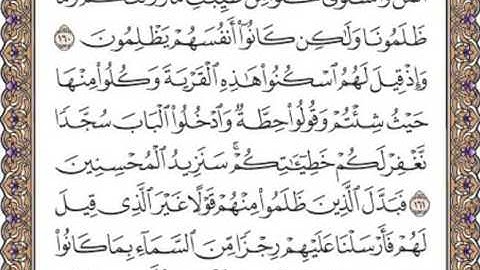 ظَلَمُونَا وَلَٰكِن كَانُوٓا۟ أَنفُسَهُمْ يَظْلِمُونَ ١٦٠
وَإِذْ قِيلَ لَهُمُ ٱسْكُنُوا۟ هَٰذِهِ ٱلْقَرْيَةَ وَكُلُوا۟ مِنْهَا
حَيْثُ شِئْتُمْ وَقُولُوا۟ حِطَّةٌ وَٱدْخُلُوا۟ ٱلْبَابَ سُجَّدًا
نَّغْفِرْ لَكُمْ خَطِيٓـَٰٔتِكُمْ ۚ سَنَزِيدُ ٱلْمُحْسِنِينَ
١٦١ فَبَدَّلَ ٱلَّذِينَ ظَلَمُوا۟ مِنْهُمْ قَوْلًا غَيْرَ ٱلَّذِى قِيلَ
لَهُمْ فَأَرْسَلْنَا عَلَيْهِمْ رِجْزًا مِّنَ ٱلسَّمَآءِ بِمَا كَانُوا۟